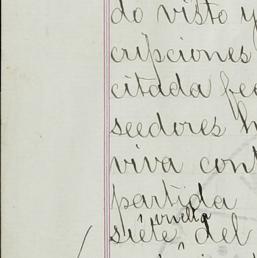 do visto y
cripciones
citada fe
seedores h
viva cont
partida
vuelta
siete del